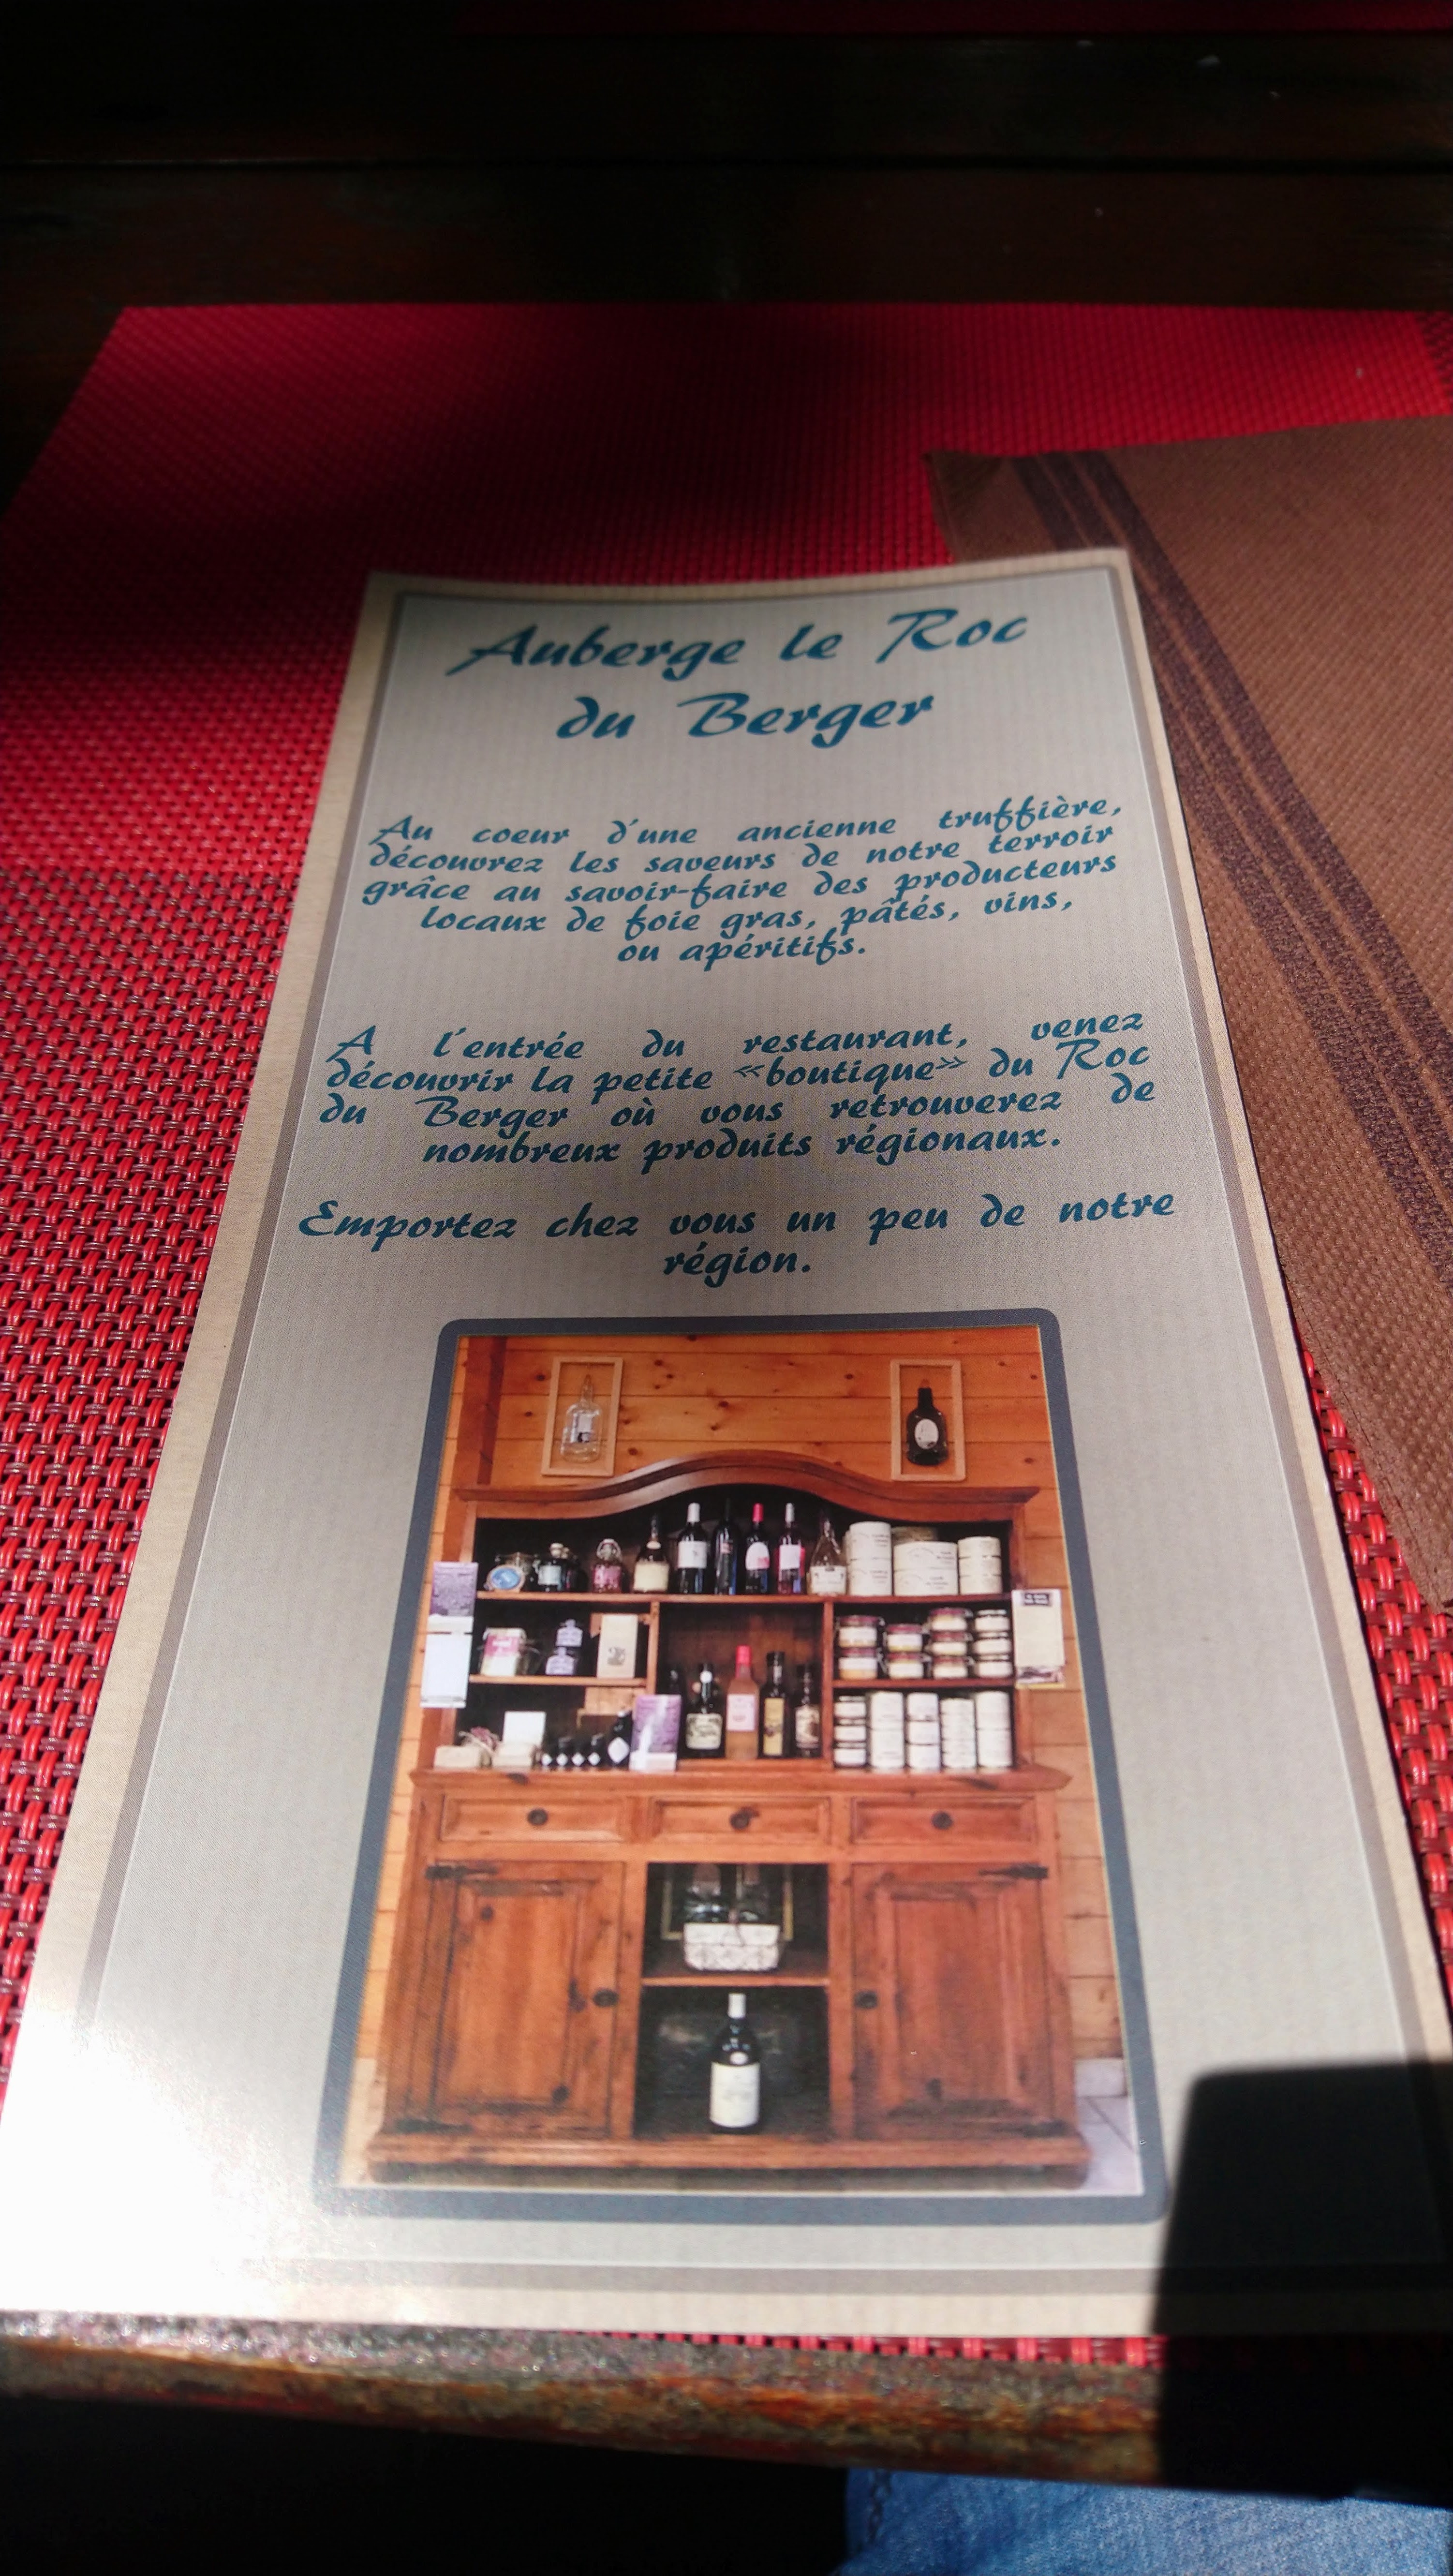 Auberge le Roc
du Berger
Au coeur d'une ancienne truffière,
découvrez les saveurs de notre terroir
grâce au savoir-faire des producteurs
locaux de foie gras, pâtés, vins,
ou apéritifs.
A l'entrée du restaurant, venez
découvrir la petite «boutique» du Roc
du Berger où vous retrouverez de
nombreux produits régionaux.
Emportez chez vous un peu de notre
région.